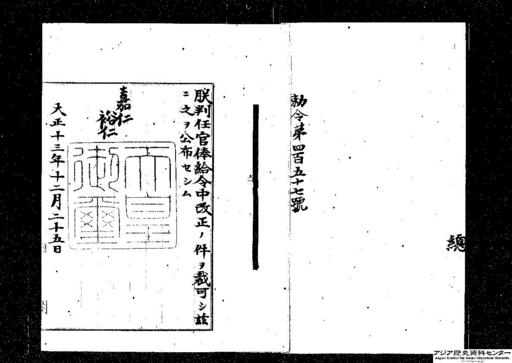 總
勅令第四百五十七號
朕判任官俸給令中改正ノ件ヲ裁可シ茲
ニ之ヲ公布セシム
嘉仁
裕仁
天皇御璽
大正十三年十二月二十五日
アジア歴史資料センター
Japan Center for Asian Historical Records